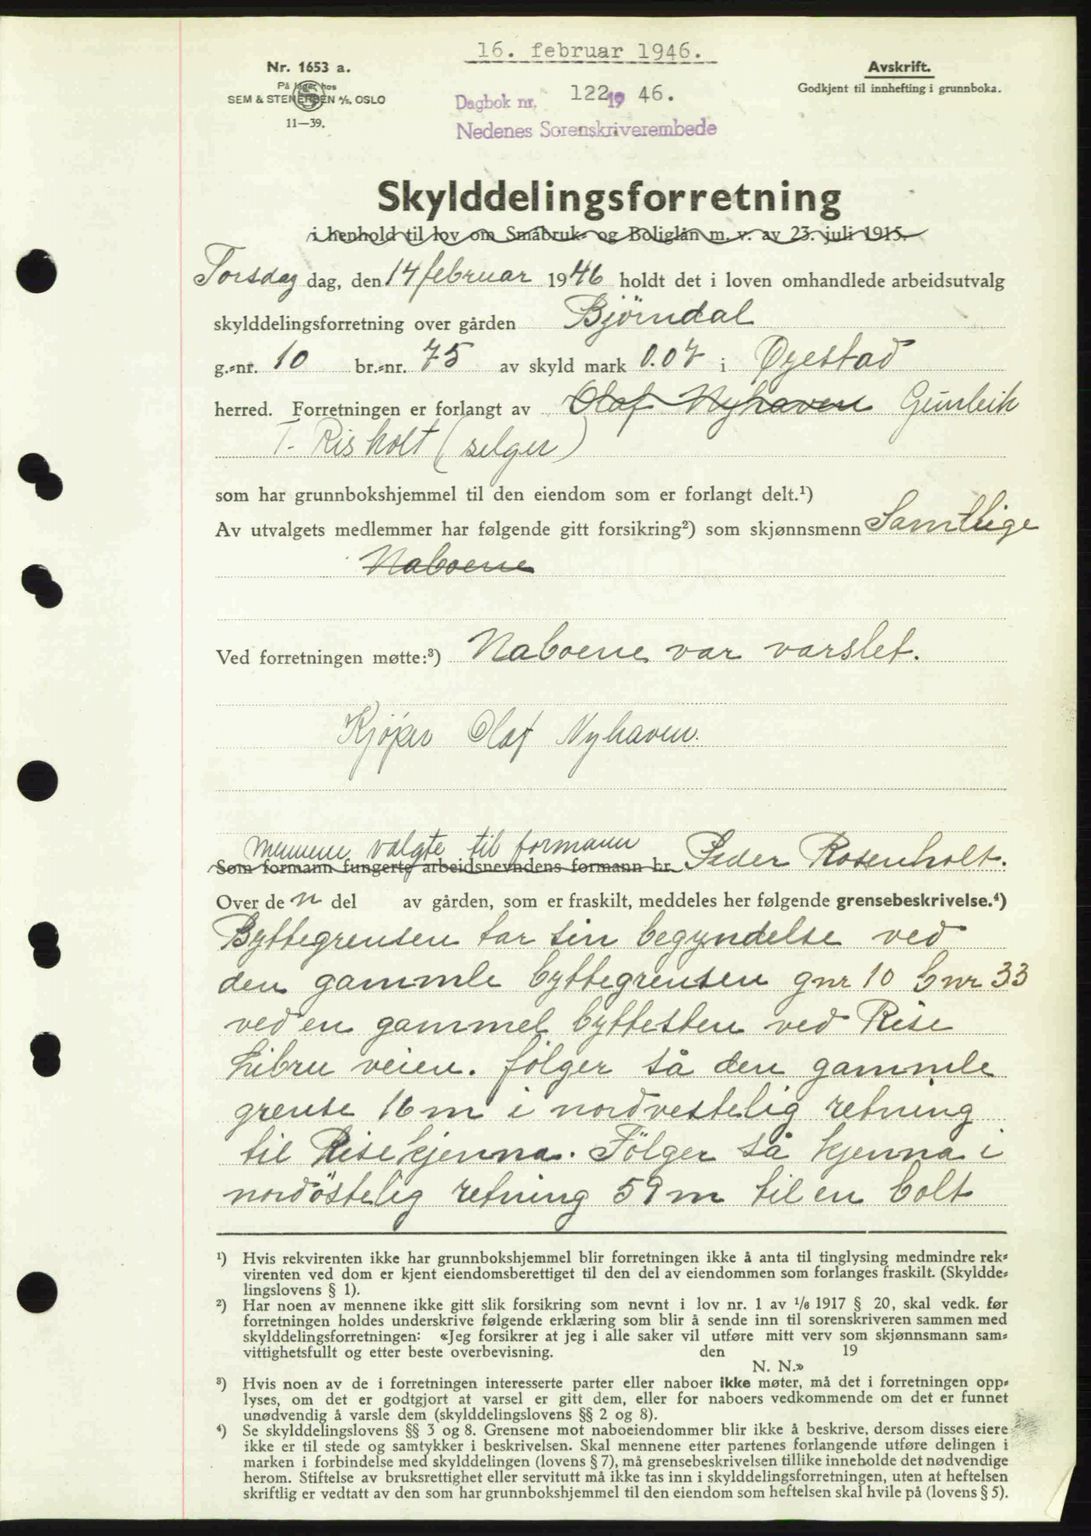 16. februar 1946.
Nr. 1653 a.
På lager hos
SEM & STENERSEN A/S, OSLO
11—39.
Avskrift.
Godkjent til innhefting i grunnboka.
Dagbok nr. 122 19 46.
Nedenes Sorenskriverembede
Skylddelingsforretning
i henhold til lov om Småbruk- og Boliglån m. v. av 23. juli 1915.
Torsdag dag, den 14 februar 1946 holdt det i loven omhandlede arbeidsutvalg
skylddelingsforretning over gården Bjørndal
g.-nr. 10 br.-nr. 75 av skyld mark 0.07 i Øyestad
herred. Forretningen er forlangt av Olaf Nyhaven Gunleik
T. Risholt (selger)
som har grunnbokshjemmel til den eiendom som er forlangt delt.¹)
Av utvalgets medlemmer har følgende gitt forsikring²) som skjønnsmenn Samtlige
Naboene
Ved forretningen møtte:³) Naboene var varslet.
Kjøper Olaf Nyhaven.
mennene valgte til formann
Som formann fungerte arbeidsnevndens formann hr. Peder Rosenholt.
Over de n del av gården, som er fraskilt, meddeles her følgende grensebeskrivelse.⁴)
Byttegrensen tar sin begyndelse ved
den gammle byttegrensen gnr 10 bnr 33
ved en gammel byttesten ved Rise
veien. følger så den gammle
grense 16 m i nordvestelig retning
til Risekjenna. Følger så kjenna i
nordöstelig retning 59 m til en bolt
¹) Hvis rekvirenten ikke har grunnbokshjemmel blir forretningen ikke å anta til tinglysing medmindre rek-
virenten ved dom er kjent eiendomsberettiget til den del av eiendommen som forlanges fraskilt. (Skyldde-
lingslovens § 1).
²) Har noen av mennene ikke gitt slik forsikring som nevnt i lov nr. 1 av ¹/₆ 1917 § 20, skal vedk. før
forretningen holdes underskrive følgende erklæring som blir å sende inn til sorenskriveren sammen med
skylddelingsforretningen: «Jeg forsikrer at jeg i alle saker vil utføre mitt verv som skjønnsmann sam-
vittighetsfullt og etter beste overbevisning. den 19
N. N.»
³) Hvis noen av de i forretningen interesserte parter eller naboer ikke møter, må det i forretningen opp-
lyses, om det er godtgjort at varsel er gitt dem, eller for naboers vedkommende om det er funnet
unødvendig å varsle dem (skylddelingslovens §§ 2 og 8).
⁴) Se skylddelingslovens §§ 3 og 8. Grensene mot naboeiendommer blir ikke å beskrive, dersom disses eiere
ikke er til stede og samtykker i beskrivelsen. Skal mennene etter partenes forlangende utføre delingen i
marken i forbindelse med skylddelingen (lovens § 7), må grensebeskrivelsen tillike inneholde det nødvendige
herom. Stiftelse av bruksrettighet eller servitutt må ikke tas inn i skylddelingsforretningen, uten at heftelsen
skriftlig er vedtatt av den som har grunnbokshjemmel til den eiendom som heftelsen skal hvile på (lovens § 5).